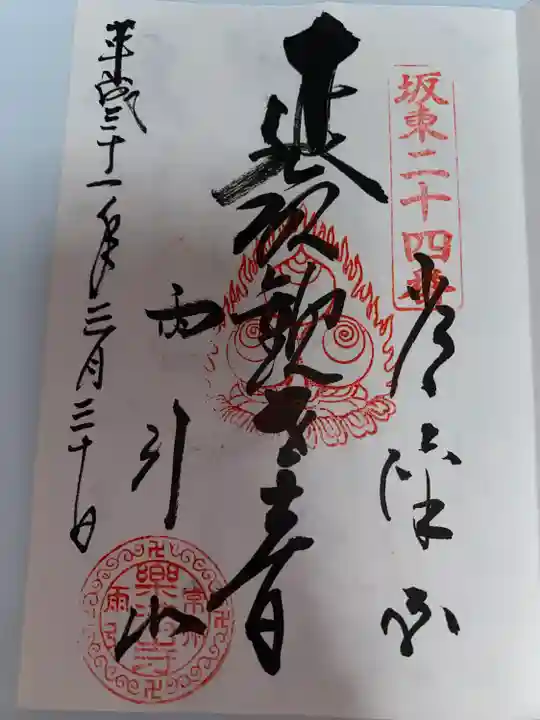 坂東二十四番
常陸国
延命観世音
雨引山
平成三十一年三月三十日
常州
樂法寺
雨引